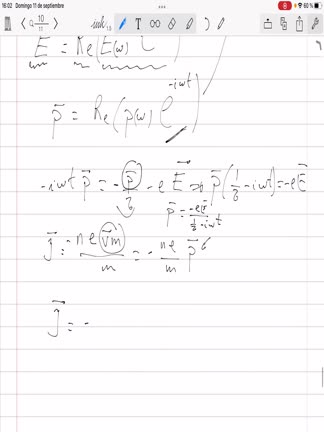 16:02 Domingo 11 de septiembre 60 %
10/11
E⃗ = Re(E(ω) e
p⃗ = Re(p(ω) e^-iωt)
-iωt p⃗ = -p⃗/z - e E⃗ ⇒ p⃗(1/z - iωt) = -eE⃗
p⃗ = -eE⃗/(1/z - iωt)
J⃗ = -n e v⃗m/m = - ne/m p⃗
J⃗ = -